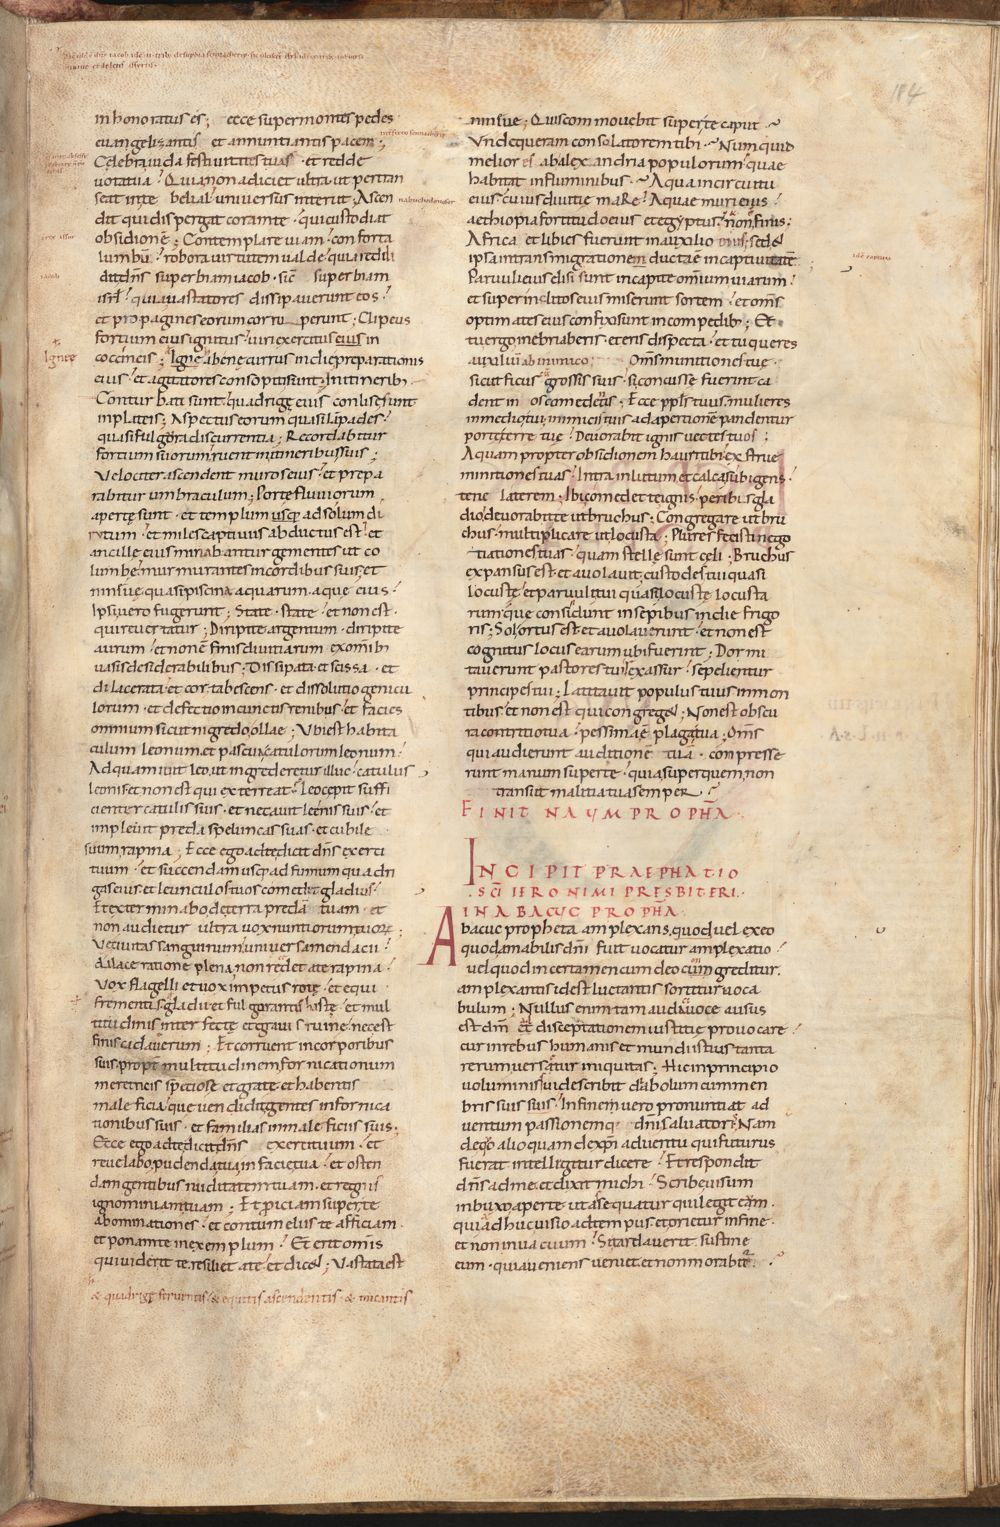 184
inhonoratus es; ecce super montes pedes
euangelizantis et annuntiantis pacem;
Celebra iuda festiuitates tuas · et redde
uota tua · Quia non adiciet ultra ut pertran
seat in te belial uniuersus interiit; Ascen
dit qui dispergat coram te · qui custodiat
obsidionē; Contemplare uiam · conforta
lumbū · robora uirtutem ualde · quia reddi
dit dn̄s superbiam iacob · sic̄ superbiam
isrl̄ · quia uastatores dissipauerunt eos ·
et propagines eorum corru perunt; Clipeus
fortium eius ignitus · uiri exercitus eius in
coccineis; Igneę abenę currus in die preparationis
eius · et agitatores consopiti sunt; In itinerib ·
Conturbati sunt quadrigę eius conlisę sunt
in plateis; Aspectus eorum quasi lāpades ·
quasi fulgora discurrentia; Recordabitur
fortium suorum ruent in itineribus suis;
Velociter ascendent muros eius · et prepa
rabitur umbraculum; Portę fluuiorum
apertę sunt · et templum usq; ad solum di
rutum · et miles captiuus abductus est · et
ancillę eius minabantur gementes ut co
lumbę murmurantes in cordibus suis · et
niniuę quasi piscina aquarum aquę eius ·
Ipsi uero fugerunt; State · state · et non est ·
qui reuertatur; Diripite argentum · diripite
aurum · et non ē finis diuitiarum ex omīb
uasis desiderabilibus; Dissipata et scissa · et
dilacerata et cor tabescens · et dissolutio genicu
lorum · et defectio in cunctis renibus · et facies
omnium sicut nigredo ollae; Vbi est habita
culum leonum et pascua catulorum leonum ·
Ad quam iuit leo ut ingrederetur illuc · catulus
leonis et non est qui exterreat · Leo cepit suffi
cienter catulis suis · et necauit leęnis suis · et
impleuit preda speluncas suas · et cubile
suum rapina; Ecce ego ad te dicit dn̄s exerci
tuum · et succendam usq; ad fumum quadri
gas eius et leunculos tuos comedet gladius ·
Et exterminabo de terra predā tuam · et
non audietur ultra uox nuntiorum tuorum;
Ve ciuitas sanguinum uniuersa mendacii ·
dilaceratione plena non recedet a te rapina ·
Vox flagelli et uox impetus rotę · et equi
frementis gladii et fulgorantis hastę · et mul
titudinis interfectę et grauis ruinę · nec est
finis cadauerum; Et corruent in corporibus
suis propt̄ multitudinem fornicationum
meretricis speciosę et gratę et habentis
maleficia · que uendidit gentes in fornica
tionibus suis · et familias in maleficiis suis ·
Ecce ego ad te dicit dn̄s exercituum · et
reuelabo pudenda tua in facie tua · et osten
dam gentibus nuditatem tuam · et regnis
ignominiam tuam; Et proiciam super te
abominationes · et contumeliis te afficiam ·
et ponam te in exemplum · Et erit omnis
qui uiderit te resiliet a te · et dicet; Vastata est
& quadrigę feruentis & equitis ascendentis · & micantis
niniue; Quis commouebit super te caput ·
Vnde queram consolatorem tibi · Num quid
melior es ab alexandria populorum · quae
habitat in fluminibus · Aqua in circuitu
eius cuius diuitię mare · Aquae muri eius ·
aethiopia fortitudo eius et egyptus · non est finis ·
Africa et libies fuerunt in auxilio · sed et
ipsa in transmigrationem ducta ē in captiuitatē
Paruuli eius elisi sunt in capite omnium uiarum ·
et super inclitos eius miserunt sortem · et om̄s
optimates eius confixi sunt in compedib; Et
tu ergo inebriaberis · et eris despecta · et tu queres
auxilium ab inimico; Om̄s munitiones tuę ·
sicut ficus grossis suis · si concussę fuerint ca
dent in os comedentis; Ecce ppl̄s tuus mulieres
in medio tui inimicis tuis ad apertionē pandentur
portę terrę tuę · Deuorabit ignis uectes tuos;
Aquam propter obsidionem hauri tibi · exstrue
munitiones tuas · Intra in lutum et calca subigens ·
tene laterem; Ibi comedet te ignis · peribis gla
dio deuorabit te ut bruchus; Congregare ut bru
chus · multiplicare ut locusta; Plures fecisti nego
tiationes tuas · quam stellę sunt cęli; Bruchus
expansus est et auolauit custodes tui quasi
locustę et paruuli tui quasi locustę locusta
rum quę considunt in sepibus in die frigo
ris; Sol ortus est et auolauerunt · et non est
cognitus locus earum ubi fuerint; Dormi
tauerunt pastores tui rex assur · sepelientur
principes tui; Latitauit populus tuus in mon
tibus et non est qui congreget; Non est obscu
ra contritio tua · pessima ē plaga tua · Om̄s
qui audierunt auditionē tuā · compresse
runt manum super te · quia super quem non
transiit malitia tua semper ·
FINIT NAVM PROPHA ·
INCIPIT PRAEPHATIO
SC̄I IERONIMI PRESBITERI ·
IN ABACVC PROPHA ·
Abacuc propheta amplexans quod uel ex eo
quod amabilis dn̄i fuit uocatur amplexatio ·
uel quod in certamen cum deo congreditur ·
amplexantis id est luctantis sortitur uoca
bulum; Nullus enim tam audaci uoce ausus
est dm̄ ad disceptationem iustitię prouocare ·
cur in rebus humanis et mundi istius tanta
rerum uersatur iniquitas; Hic in principio
uoluminis sui describit diabolum cum mem
bris suis suis · In finem uero pronuntiat ad
uentum passionemq; dn̄i saluatoris Nam
de quo alio quam de xp̄i aduentu qui futurus
fuerat intellegitur dicere · Et respondit
dn̄s ad me et dixit michi · Scribe uisum
in buxo aperte ut assequatur qui legit eam ·
quia adhuc uisio ad tempus et orietur in fine ·
et non in uacuum · Si tardauerit sustine
eum · quia ueniens ueniet et non morabitur ·